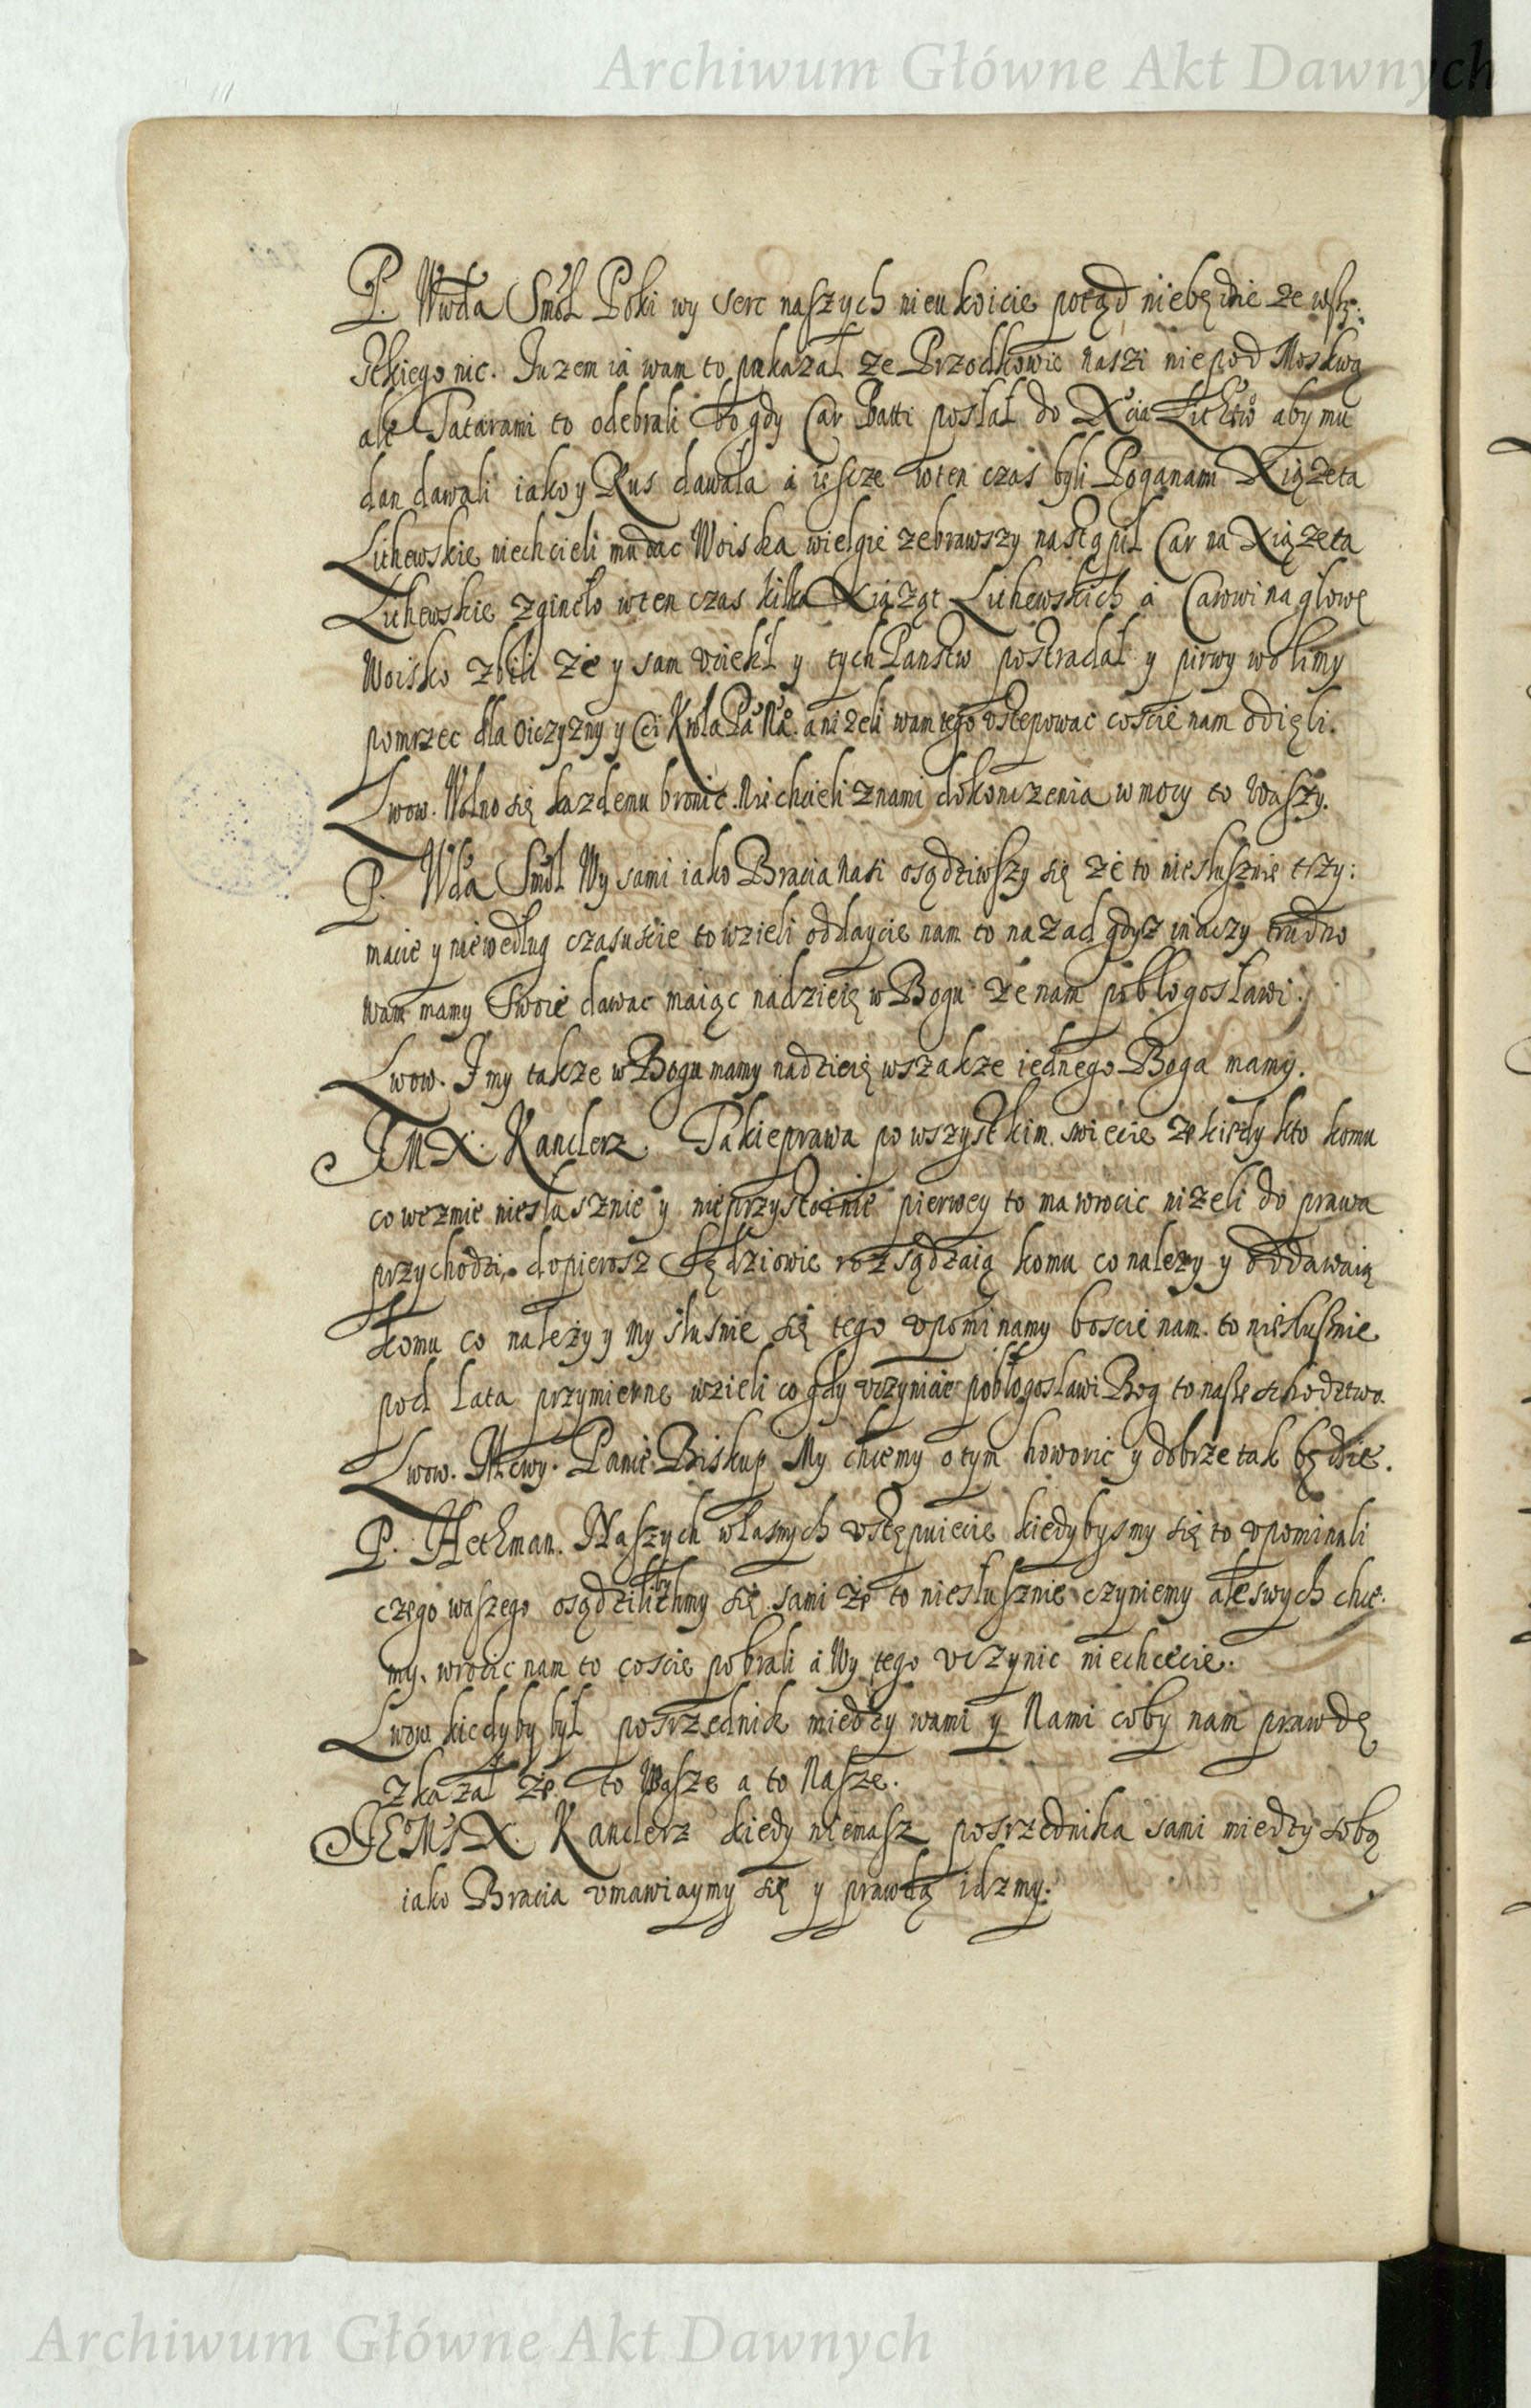 Archiwum Główne Akt Dawnych
P. Wwda Smol Poki wy serc naszych nieukoicie potąd niebędzie ze wszy:
stkiego nic. Juzem ia wam to pokazał ze Przodkowie naszi nie pod Moskwą
ale Tatarami to odebrali bo gdy Car Batti posłał do Xcia Litew aby mu
dan dawali iako y Rus dawała á iescze w ten czas byli Poganami Xiązeta
Lithewskie niechcieli mu dac Woiska wielgie zebrawszy nastąpił Car na Xiązeta
Lithewskie zgineło w ten czas kilka Xiąząt Lithewskich á Carowi na głowę
Woisko zbili że y sam uciekł y tych Panstw postradał y pirwy wolimy
pomrzec dla oiczyzny y Czi Krola Pa Na. anizeli wam tego ustepowac coscie nam odięli.
Lwow. Wolno się kazdemu bronic. Niechcieli z nami dokonczenia w mocy to Waszy.
P. Wda Smol Wy sami iako Bracia nasi osądziwszy się że to niesłusznie trzy:
macie y niewedług czasu scie to wzieli oddaycie nam to nazad gdyz inaczy trudno
wam mamy swoie dawac maiąc nadzieię w Bogu ze nam pobłogosławi.
Lwow. I my takze w Bogu mamy nadzieię wszakze iednego Boga mamy.
JMX. Kanclerz. Takie prawa po wszystkim swiecie ze kiedy kto komu
co wezmie niesłusznie y nieprzystoinie pierwey to ma wrocic nizeli do prawa
przychodzi, dopierosz Sędziowie rozsądzaią komu co nalezy y oddawaią
komu co należy y my słusnie się tego upominamy boscie nam to niesłusznie
pod lata przymierne wzieli co gdy uczynicie pobłogosławi Bog to nasze schodztwo.
Lwow. Panie Biskup My chcemy o tym howoric y dobrze tak będzie.
P. Hethman. Naszych własnych ustępuiecie kiedybysmy się to upominali
czego waszego osądzilibychmy się sami że to niesłusznie czyniemy ale swych chce:
my. wrocic nam to coscie pobrali á Wy tego uczynic niechcecie.
Lwow. kiedyby był posrzednik miedzy wami y Nami coby nam prawdę
zkazał że to Wasze a to Nasze.
JEoMsX. Kanclerz kiedy niemasz posrzednika sami miedzy sobą
iako Bracia umawiaymy się y prawdą idzmy.
Archiwum Główne Akt Dawnych